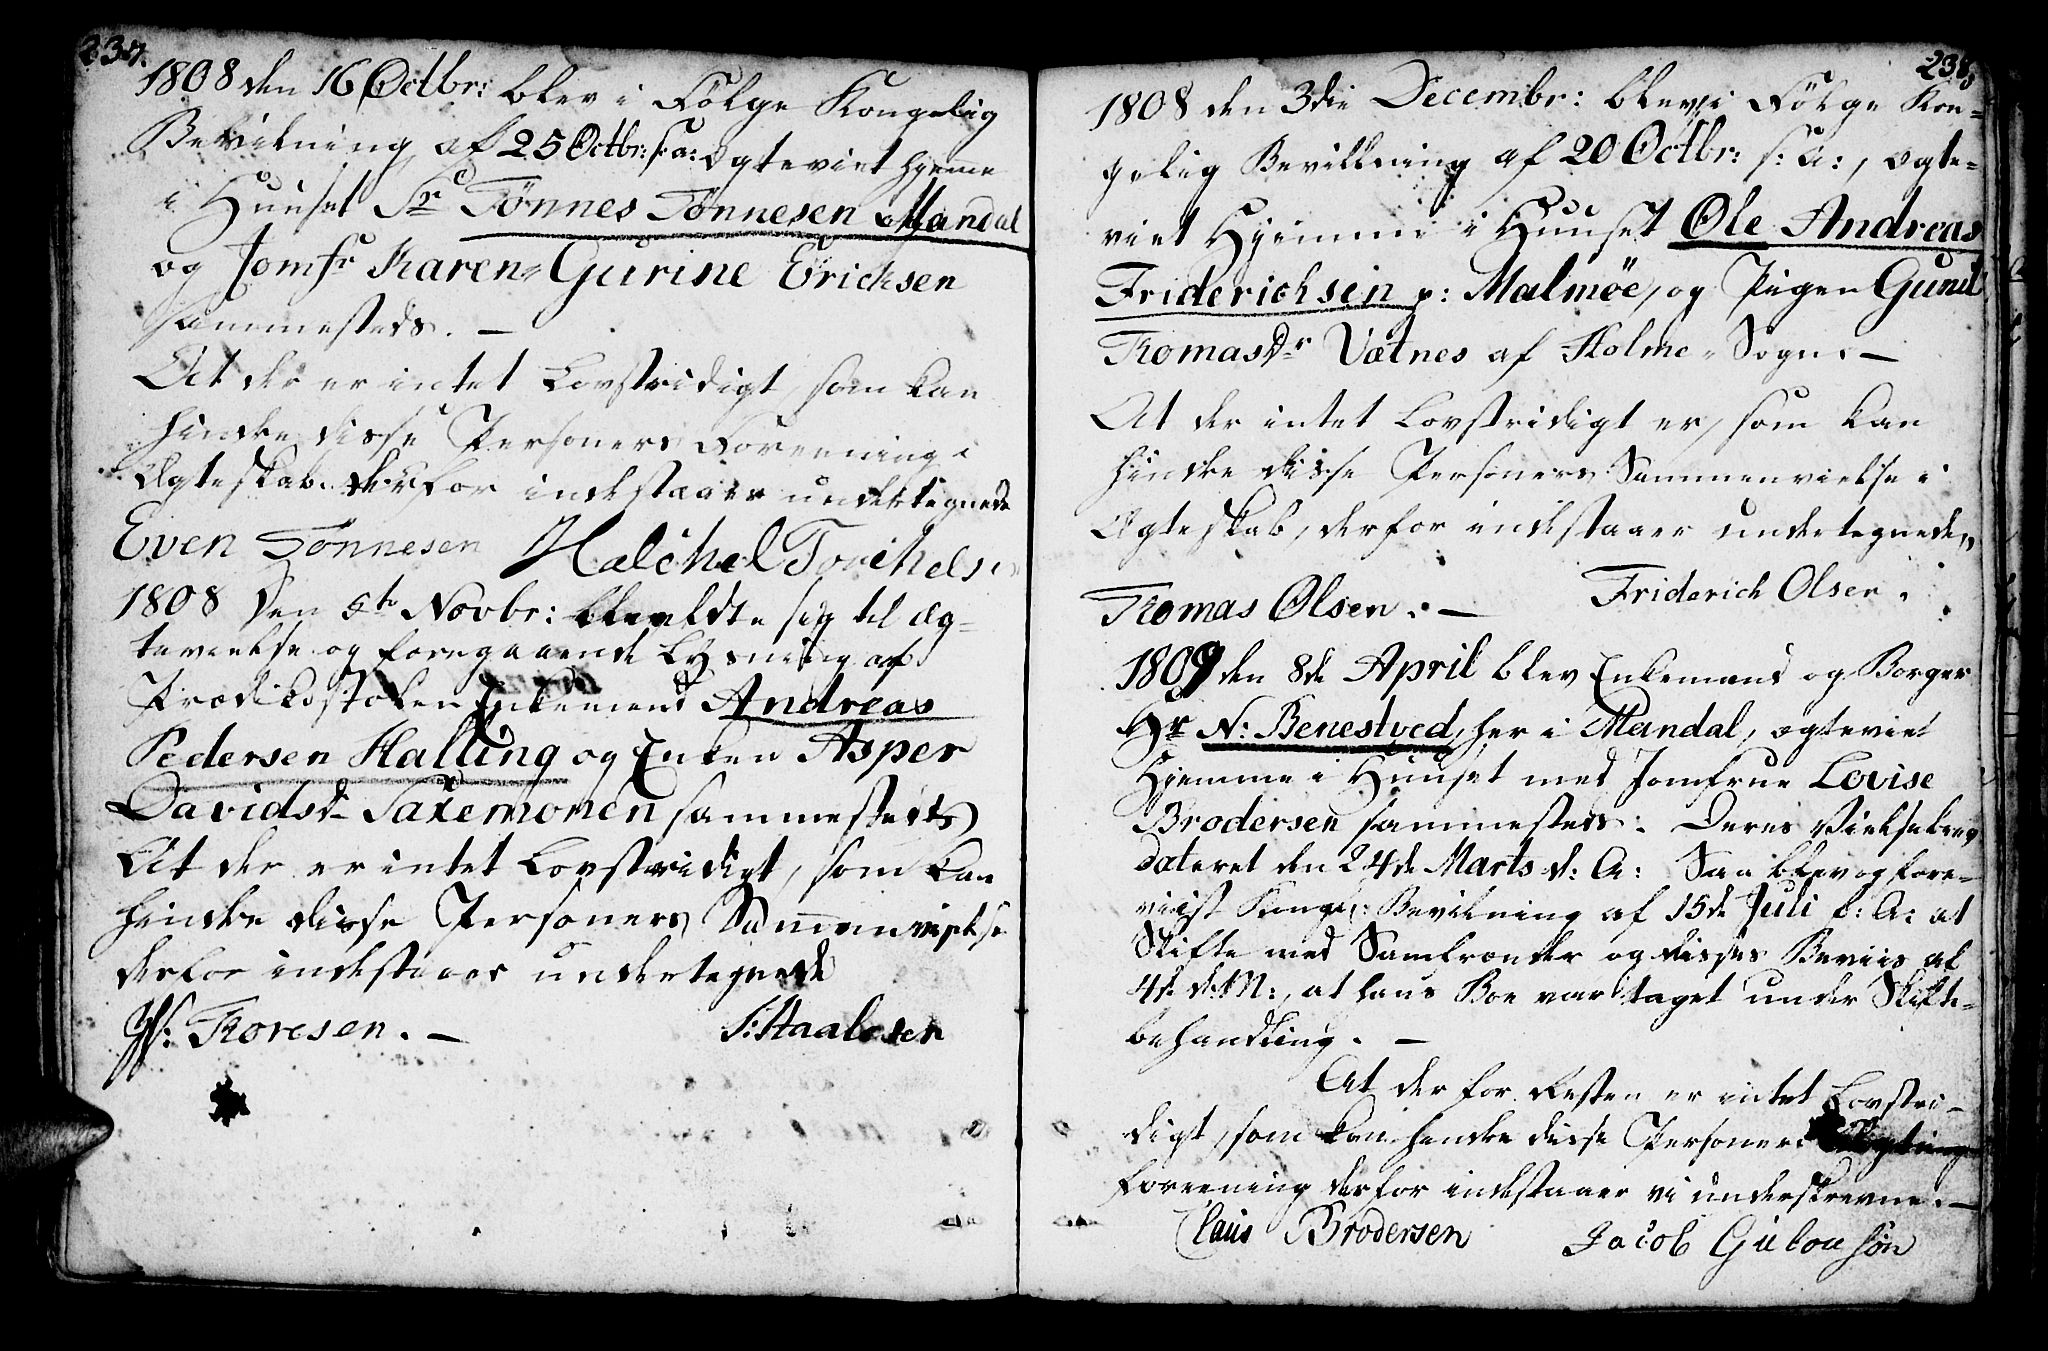 237.
1808 den 16 Octbr: blev i Følge Kongelig
Bevilning af 25 Octbr: s: a: Ægteviet hjemme
i Huuset Sr Tönnes Tönnesen Mandal
og Jomfr Karen Gurine Ericksen
sammesteds. —
At der er intet Lovstridigt, som kan
hindre disse Personers Foreening i
Ægteskab, derfor indestaaer undertegnede
Even Tönnesen Halchel Torchels
1808 den 5te Novbr: meldte sig til Æg-
tevielse og foregaaende Lysning af
Prædikestolen Enkemand Andreas
Pedersen Halling og Enken Asper
Davidsdr Saxemonen sammesteds
At der er intet Lovstridigt, som kan
hindre disse Personers Sammenvielse
derfor indestaaer undertegnede
Toresen. — S: Haalesen
238
1808 den 3die Decembr: blev i Følge Kon-
gelig Bevillning af 20 Octbr: s: a:, Ægte-
viet Hjemme i Huuset Ole Andreas
Friderichsen p: Malmöe, og Pigen Gunil
Tomasdr Vætnes af Holme Sogn. —
At der intet Lovstridigt er, som kan
hindre disse Personers Sammenvielse i
Ægteskab, derfor indestaaer undertegnede,
Tomas Olsen. — Friderich Olsen.
1809 den 8de April blev Enkemand og Borger
Hr N: Benestved, her i Mandal, ægteviet
Hjemme i Huuset med Jomfrue Lovise
Brodersen sammesteds: Deres Vielsebrev
dateret den 24de Marts d: A: Saa blev og fore-
viist Kongel: Bevilning af 15de Juli f: A: at
Skifte med Samfrænder og disses Beviis af
4de d: M:, at hans Boe var taget under Skifte-
behandling. —
At der for Resten er intet Lovstri-
digt, som kan hindre disse Personers
Foreening derfor indestaaer vi underskrevne. —
Claus Brodersen Jacob